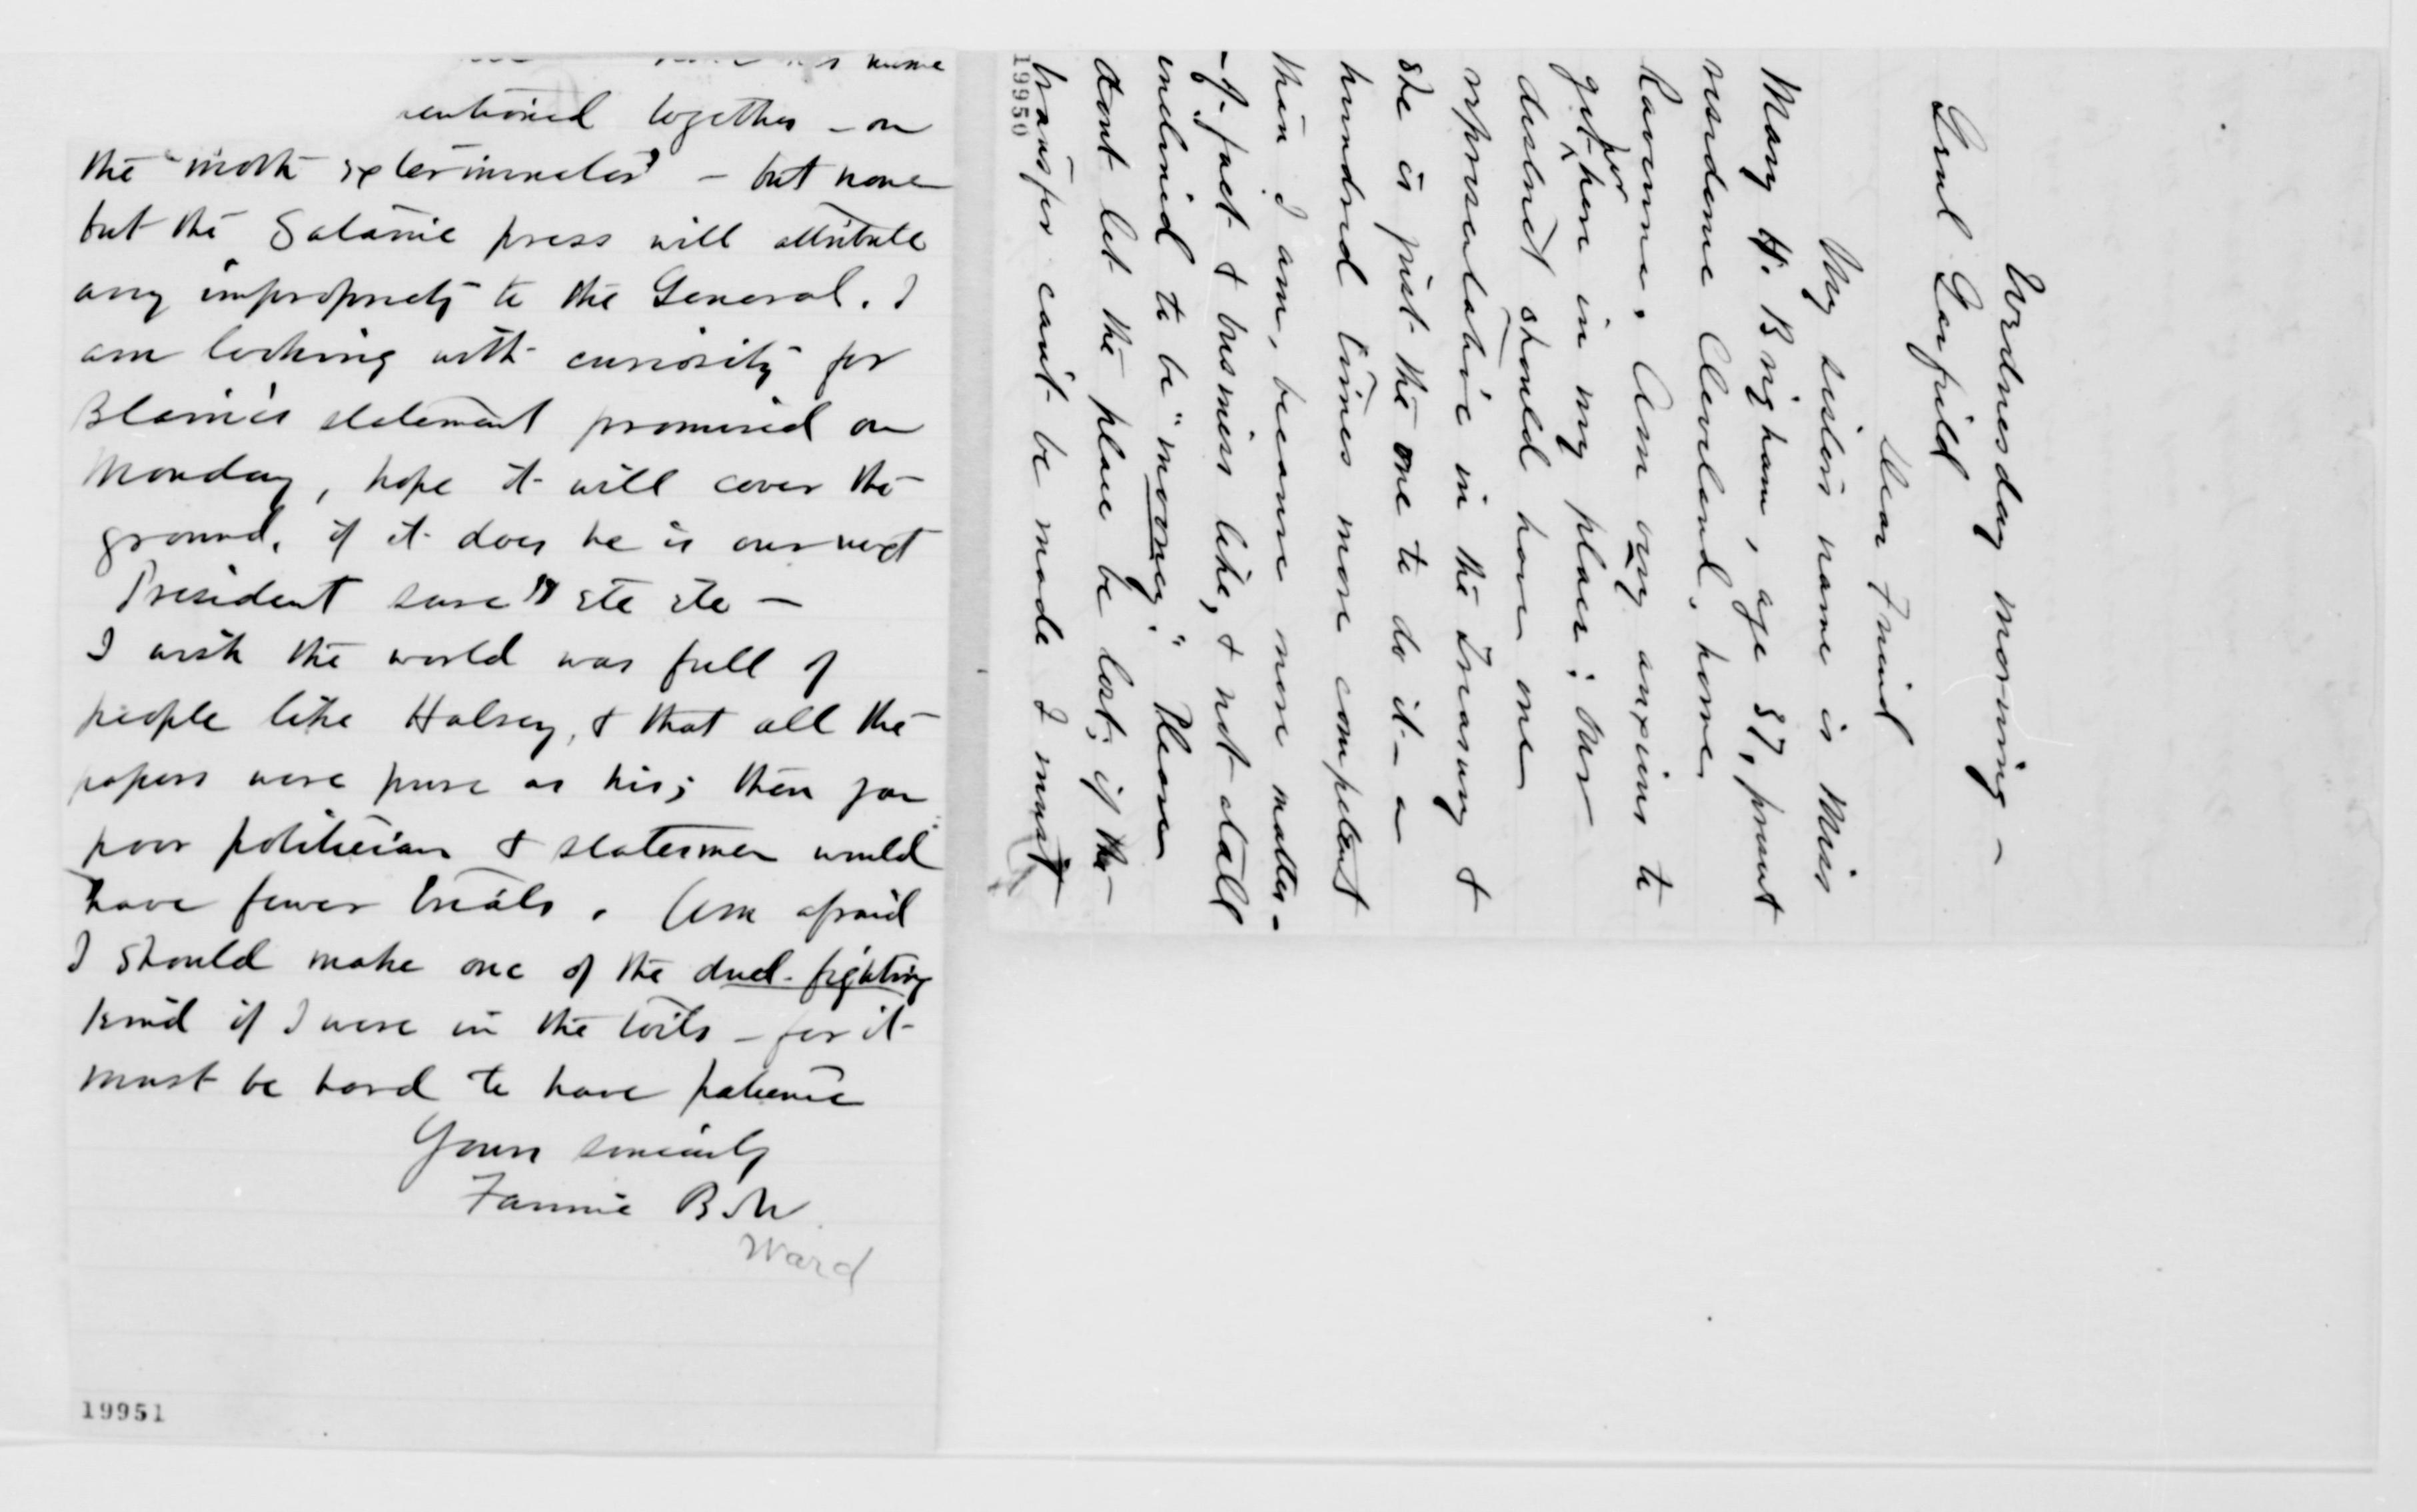 name
mentioned together - on
the "moth exterminator" - but none
but the Satanic press will attribute
any impropriety to the General. I
am looking with curiosity for
Blaine's statement promised on
Monday, hope it will cover the
ground, if it does he is our next
President sure etc etc -
I wish the world was full of
people like Halsey, & that all the
papers were pure as his; then you
poor politicians & statesmen would
have fewer trials. Am afraid
I should make one of the duel-fighting
kind if I were in the toils - for it
must be hard to have patience
Yours sincerely
Fannie B. W.
Ward
19951
Wednesday morning -
Genl Garfield
Dear Friend
My sisters name is Miss
Mary H. Brigham, age 37, present
residence Cleveland, home
Ravenna. Am very anxious to
get for her in my place; our
district should have one
representative in the Treasury &
she is just the one to do it - a
hundred times more competent
than I am, because more matter-
-of-fact & business like, & not atall
inclined to be "mooney." Please
dont let the place be lost; if the
transfer can't be made I must
19950